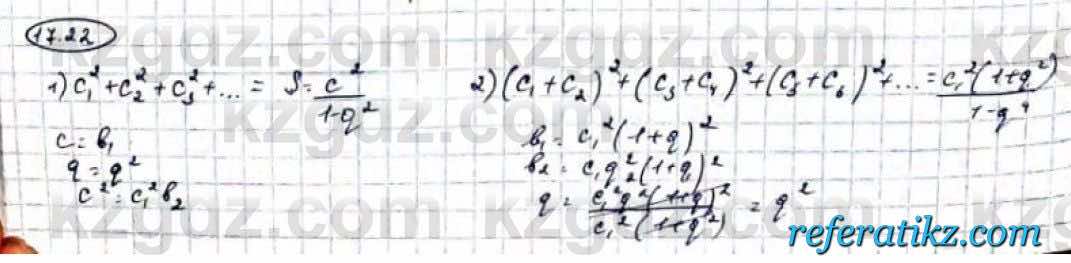 17.22
1) c₁² + c₂² + c₃² + ... = S = c²/(1-q²)
c = b₁
q = q²
c² = c₁² b₂
2) (c₁ + c₂)² + (c₃ + c₄)² + (c₅ + c₆)² + ... = c₁²(1+q²)/(1-q⁴)
b₁ = c₁²(1+q)²
b₂ = c₁q₂²(1+q)²
q = c₁²q²(1+q)²/c₁²(1+q²) = q²
kzgdz.com
referatikz.com